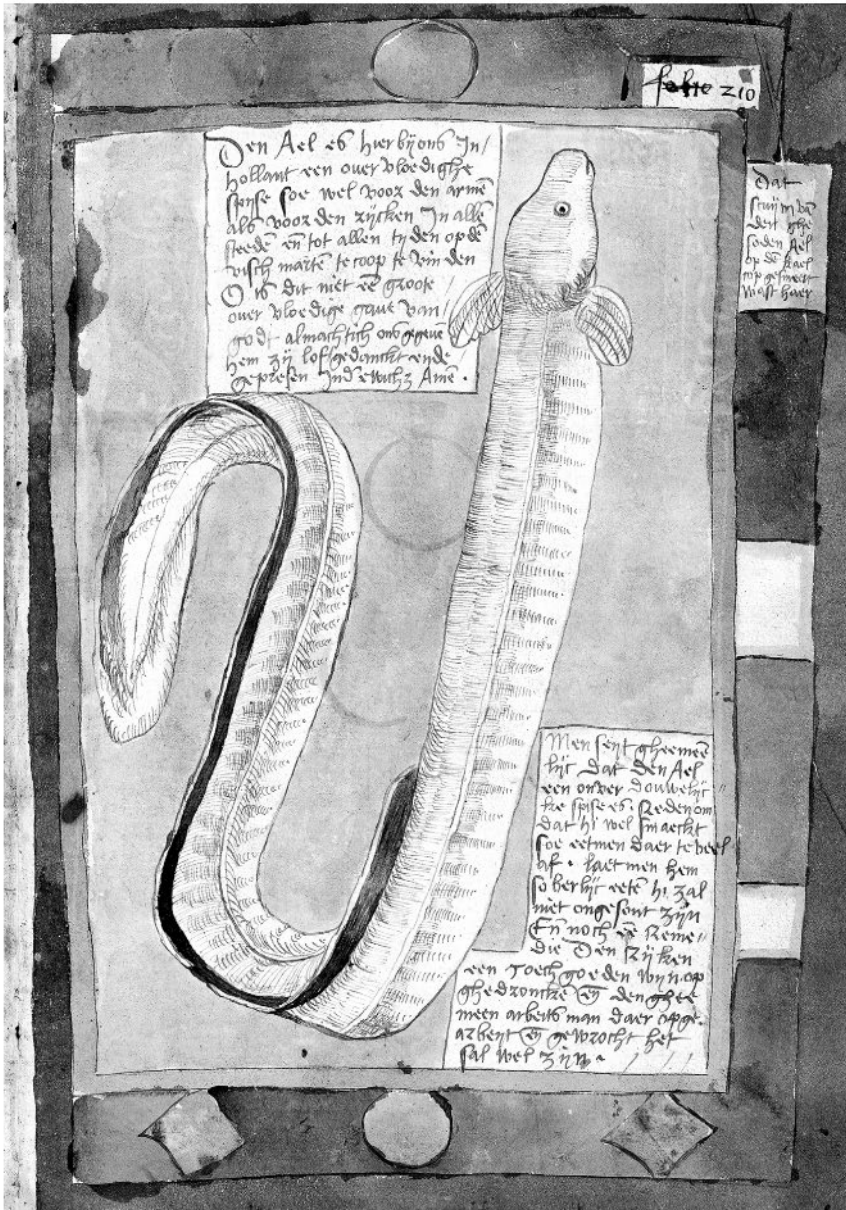 folio 210
Den Ael es hier bÿ ons In/
hollant een over vloedighe
spÿse soe wel voor den armē
als voor den rÿcken In allē
steedē eñ tot allen tyden op dē
visch martē te coop te vinden
O is dit niet eē groote /
over vloedige gaue van /
godt almachtich ons gegeuē
hem zÿ lof gedanckt ende /
gepresen Ind ewich3 Amē .
Dat
scuÿm vā
den ghe
soden Ael
op dē kael
cop gesmeert
wast haer
Men seÿt gheemeē
lÿc dat den Ael
een onver douwelÿc
ke spise es . Reden om
dat hi wel smaeckt
soe eetmen daer te veel
af . laet men hem
soberlÿc eetē hi zal
niet ongesont zÿn
Eñ noch eē Reme //
die Den Rÿken
een toech goeden wÿn op
ghedronckē eñ den ghee
meen arbeits man daer op ge.
arbeÿt eñ gewrocht het
sal wel zÿn .